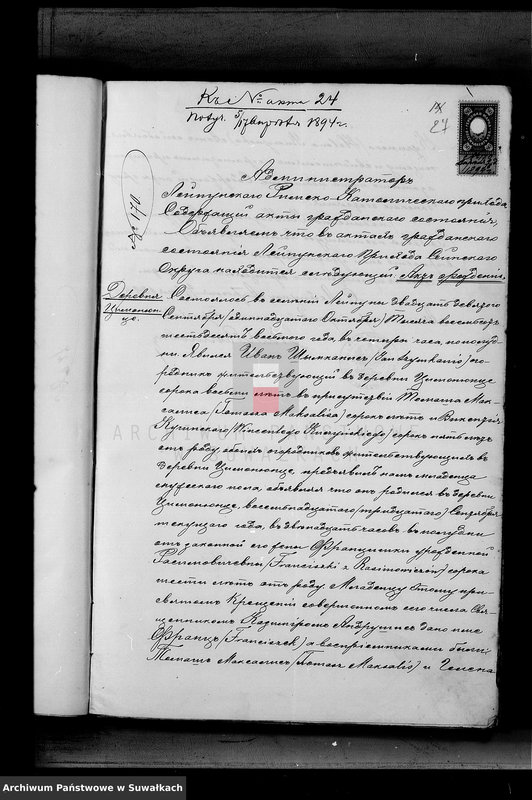 Къ № акта 24
Получ. 5/17 Января 1894 г.
27
Администраторъ
Лейпунского Римско-Католическаго прихода
Содержащий акты гражданского состояния,
Объявляетъ что въ актахъ гражданского
состояния Лейпунского Прихода Сейнского
Округа находится следующий Актъ рождения.
Деревня
Состоялось въ селении Лейпуны двадцать девятого
Сентября (одиннадцатого Октября) Тысяча восемьсотъ
шестьдесятъ шестого года, въ четыре часа, по полуд-
ни. Явился Иванъ Шимканисъ (Jan Szymkanis) ого-
родникъ жительствующий въ деревни
сорока восьми летъ въ присутствии Томаша Мак-
салиса (Tomasza Maksalisa) сорокъ летъ и Викентия
Кучинского (Wincentego Kuczyńskiego) сорокъ пять летъ
отъ роду обоихъ огородниковъ жительствующихъ въ
деревни предъявилъ намъ младенца
мужеского пола, объявляя что онъ родился въ деревни
восемнадцатого (тридцатого) Сентября
текущаго года, въ двенадцать часовъ въ полудни
отъ законной его жены Францишки урожденной
Расимовичевны (Franciszki z Rasimowiczów) сорока
шести летъ отъ роду. Младенцу этому при
святомъ Крещении совершенномъ сего числа Свя-
щенникомъ Казимиромъ Андрушисъ дано имя
Францъ (Franciszek) а восприемниками были:
Томашъ Максалисъ (Tomasz Maksalis) и Елена
ARCHIWUM PAŃSTWOWE
Archiwum Państwowe w Suwałkach